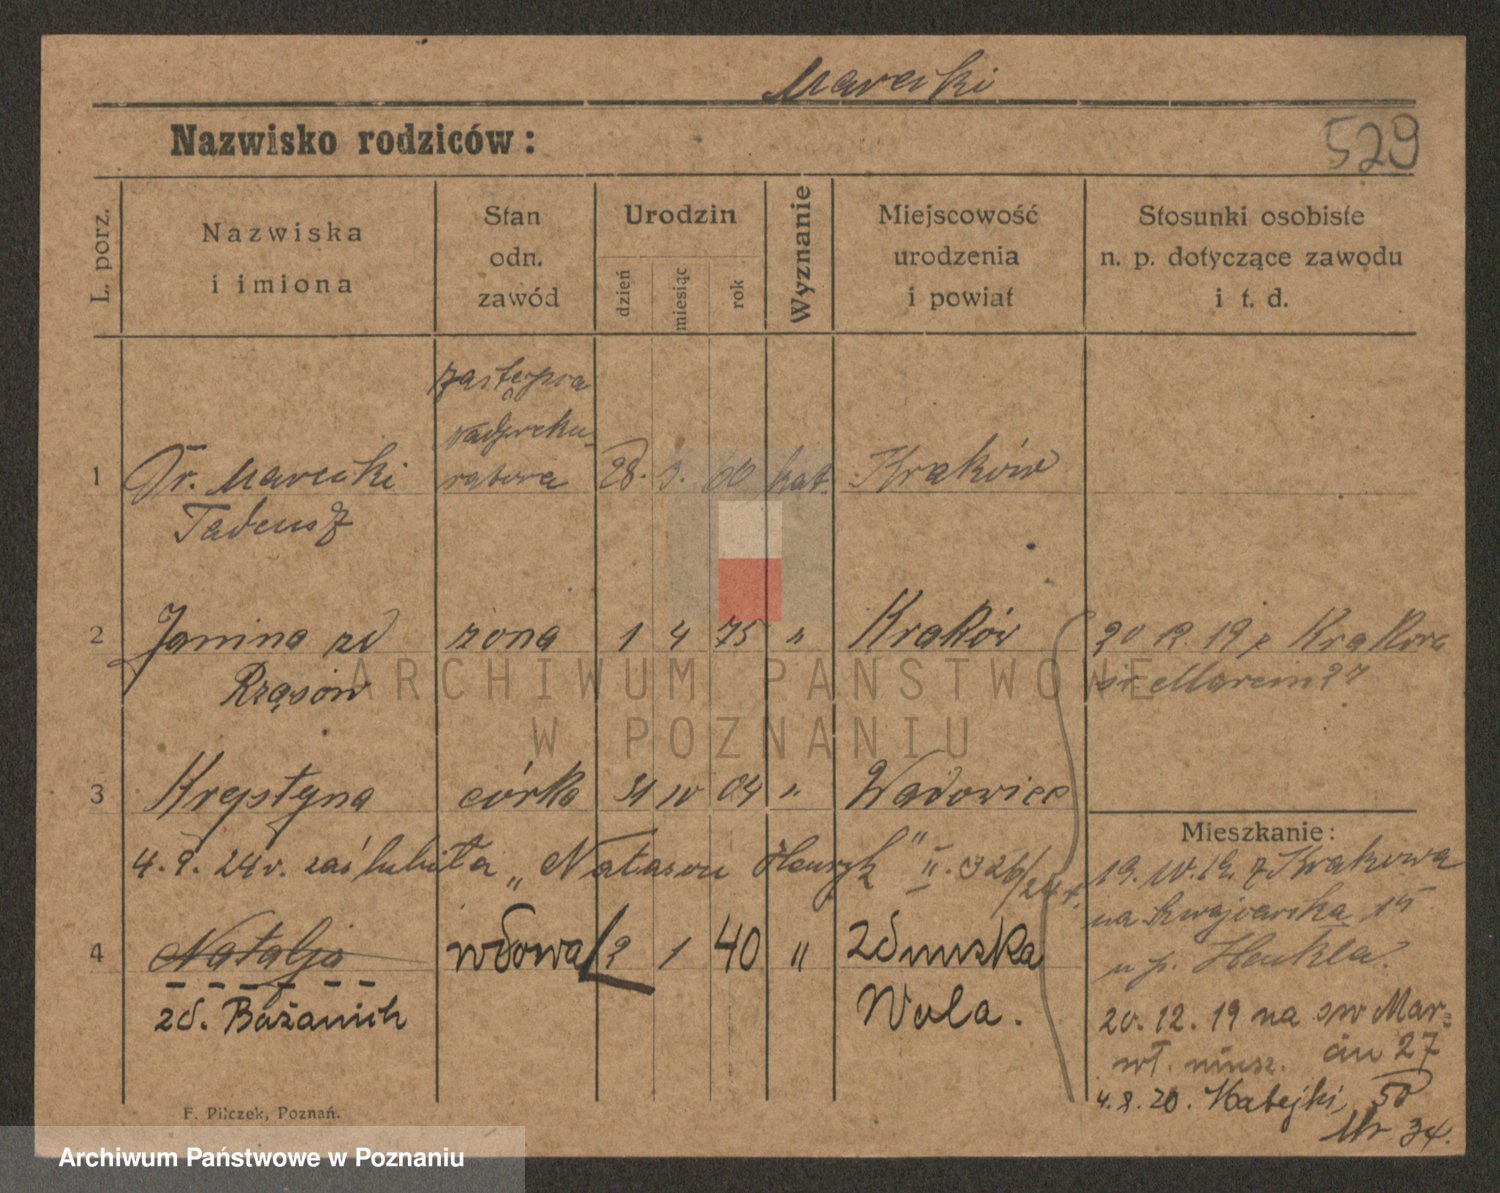 Marecki
Nazwisko rodziców:
529
L. porz.
Nazwiska
i imiona
Stan
odn.
zawód
Urodzin
dzień
miesiąc
rok
Wyznanie
Miejscowość
urodzenia
i powiat
Stosunki osobiste
n. p. dotyczące zawodu
i t. d.
zastępca
nadproku-
1 Dr. Marecki ratora 28. 3. 60 kat. Kraków
Tadeusz
2 Janina zd żona 1 4 75 " Kraków
Rząsów
20 12. 19 z Krakowa
św. Marcin 27
3 Krystyna córka 31 10 04 " Wadowice
4. 9. 24 r. zaślubiła „Natason Henryk" II. 926/24 r.
4 Natalja wdowa 2 1 40 " Zduńska
zd. Bażanich Wola.
Mieszkanie:
19. 10. 19. z Krakowa
na 15
u p.
20. 12. 19 na św Mar-
cin 27
wł. miesz.
4. 8. 20. Matejki, 50
Nr 34.
F. Pilczek, Poznań.
ARCHIWUM PAŃSTWOWE
W POZNANIU
Archiwum Państwowe w Poznaniu